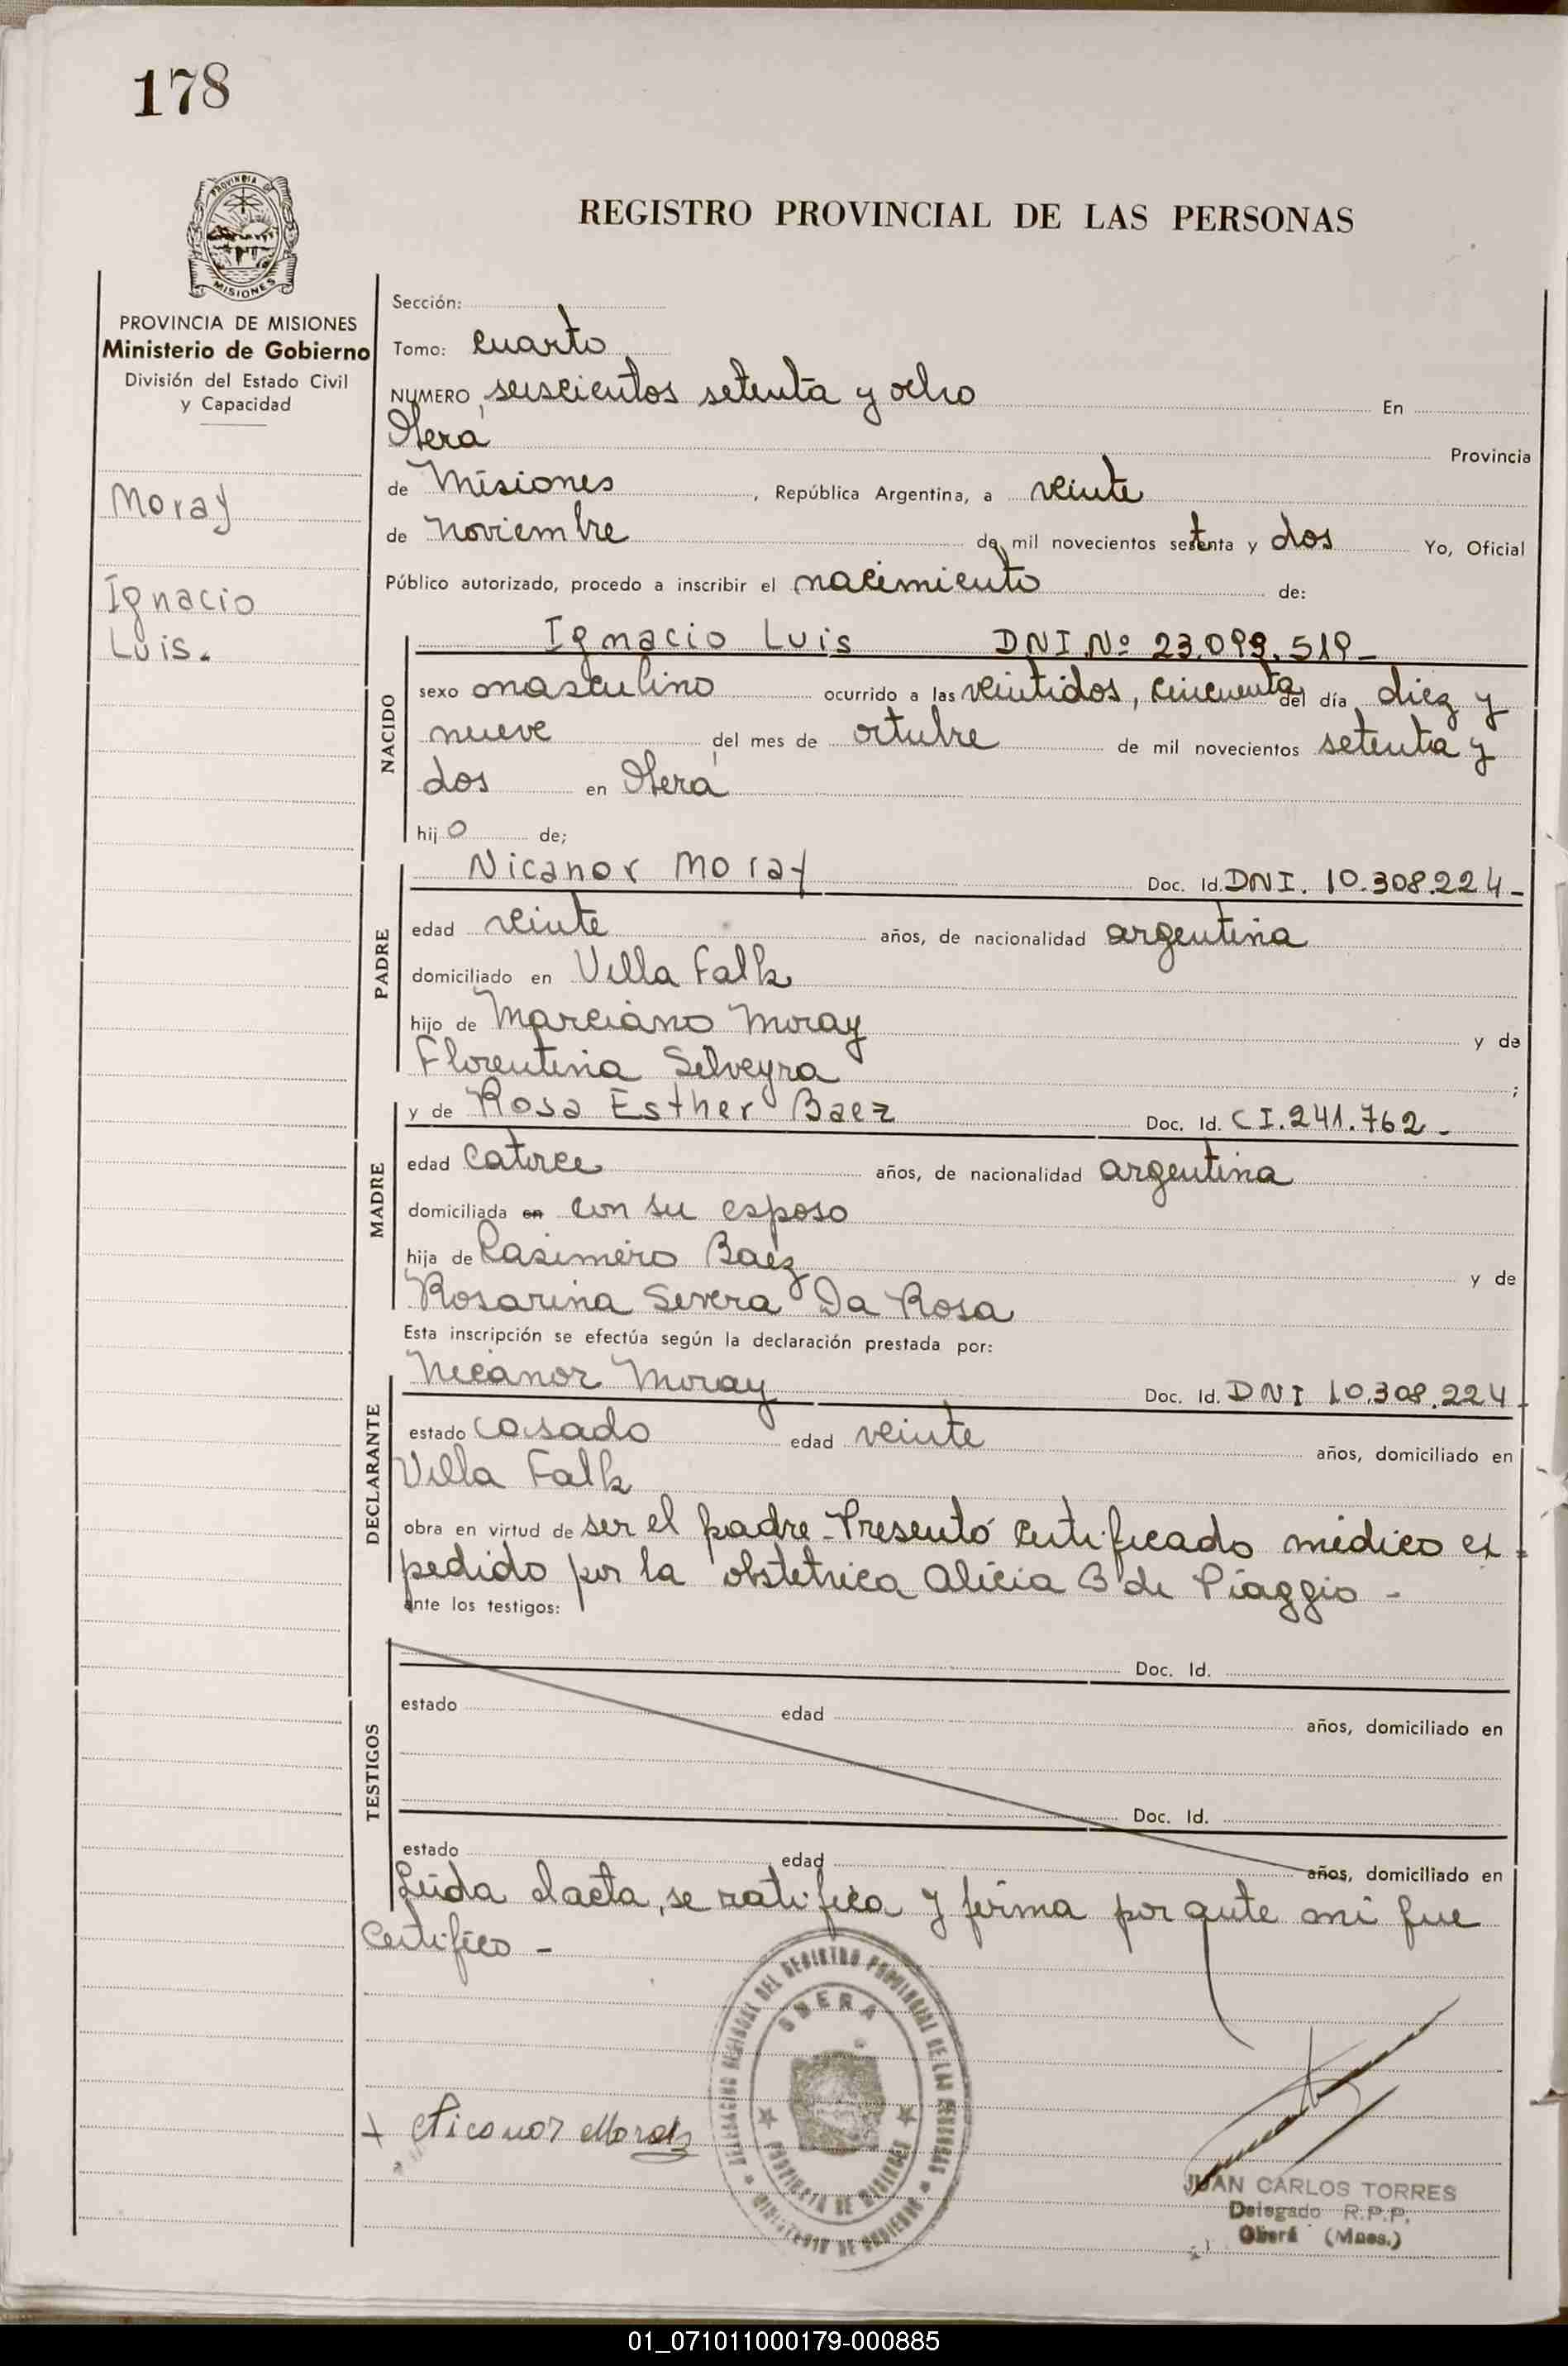 178
PROVINCIA DE
MISIONES
REGISTRO PROVINCIAL DE LAS PERSONAS
PROVINCIA DE MISIONES
Ministerio de Gobierno
División del Estado Civil
y Capacidad
Moray
Ignacio
Luis.
Sección:
Tomo: cuarto
NUMERO seiscientos setenta y ocho En
Oberá Provincia
de Misiones, República Argentina, a veinte
de noviembre de mil novecientos setenta y dos Yo, Oficial
Público autorizado, procedo a inscribir el nacimiento de:
NACIDO
Ignacio Luis DNI Nº 23.099.519-
sexo masculino ocurrido a las veintidos, cincuenta del día diez y
nueve del mes de octubre de mil novecientos setenta y
dos en Oberá
hijo de;
PADRE
Nicanor Moray Doc. Id. DNI. 10.308.224-
edad veinte años, de nacionalidad argentina
domiciliado en Villa Falk
hijo de Marciano Moray y de
Florentina Silveyra ;
MADRE
y de Rosa Esther Baez Doc. Id. CI.241.762-
edad catorce años, de nacionalidad argentina
domiciliada en con su esposo
hija de Casimiro Baez y de
Rosarina Severa Da Rosa
Esta inscripción se efectúa según la declaración prestada por:
DECLARANTE
Nicanor Moray Doc. Id. DNI 10.308.224-
estado casado edad veinte años, domiciliado en
Villa Falk
obra en virtud de ser el padre-Presentó certificado médico ex=
pedido por la obstetrica Alicia B de Piaggio -
ante los testigos:
TESTIGOS
Doc. Id.
estado edad años, domiciliado en
Doc. Id.
estado edad años, domiciliado en
Leida el acta, se ratifica y firma por ante mi que
Certifico -
DELEGACION REGISTRO DEL REGISTRO PROVINCIAL DE LAS PERSONAS
OBERA
PROVINCIA DE MISIONES
MINISTERIO DE GOBIERNO
+ Nicanor Moray
JUAN CARLOS TORRES
Delegado R.P.P.
Oberá (Mnes.)
01_071011000179-000885